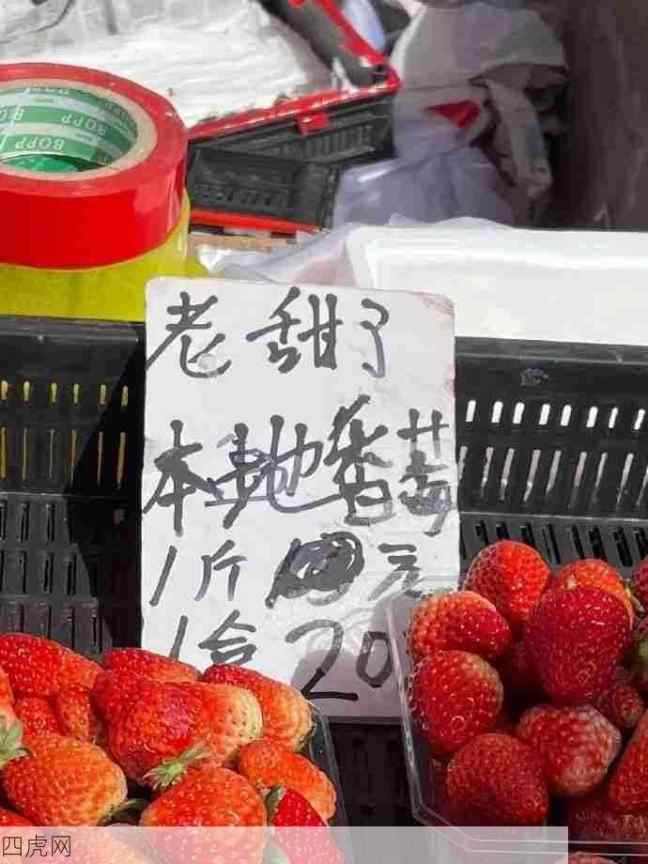 BOPP
BOPP
老甜了
本地香莓
1斤 元
1盒20
四虎网